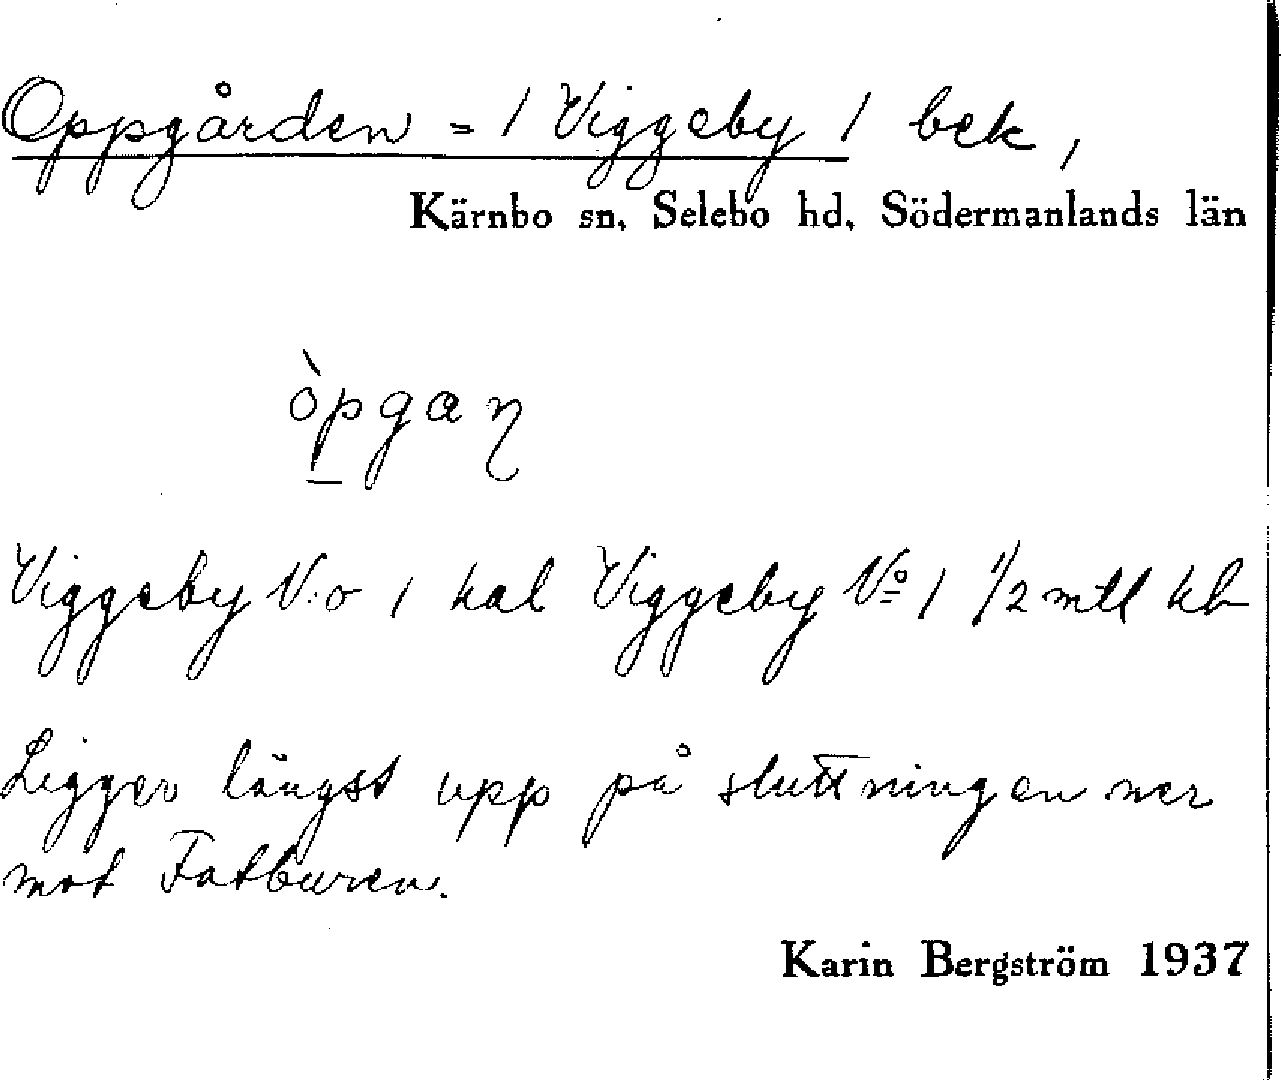 Oppgården = / Viggeby / bek,
Kärnbo sn. Selebo hd. Södermanlands län
òpgaɳ
Viggeby N:o 1 hal Viggeby No 1 1/2 mtl kb
Ligger längst upp på sluttningen ner
mot Fatburen.
Karin Bergström 1937